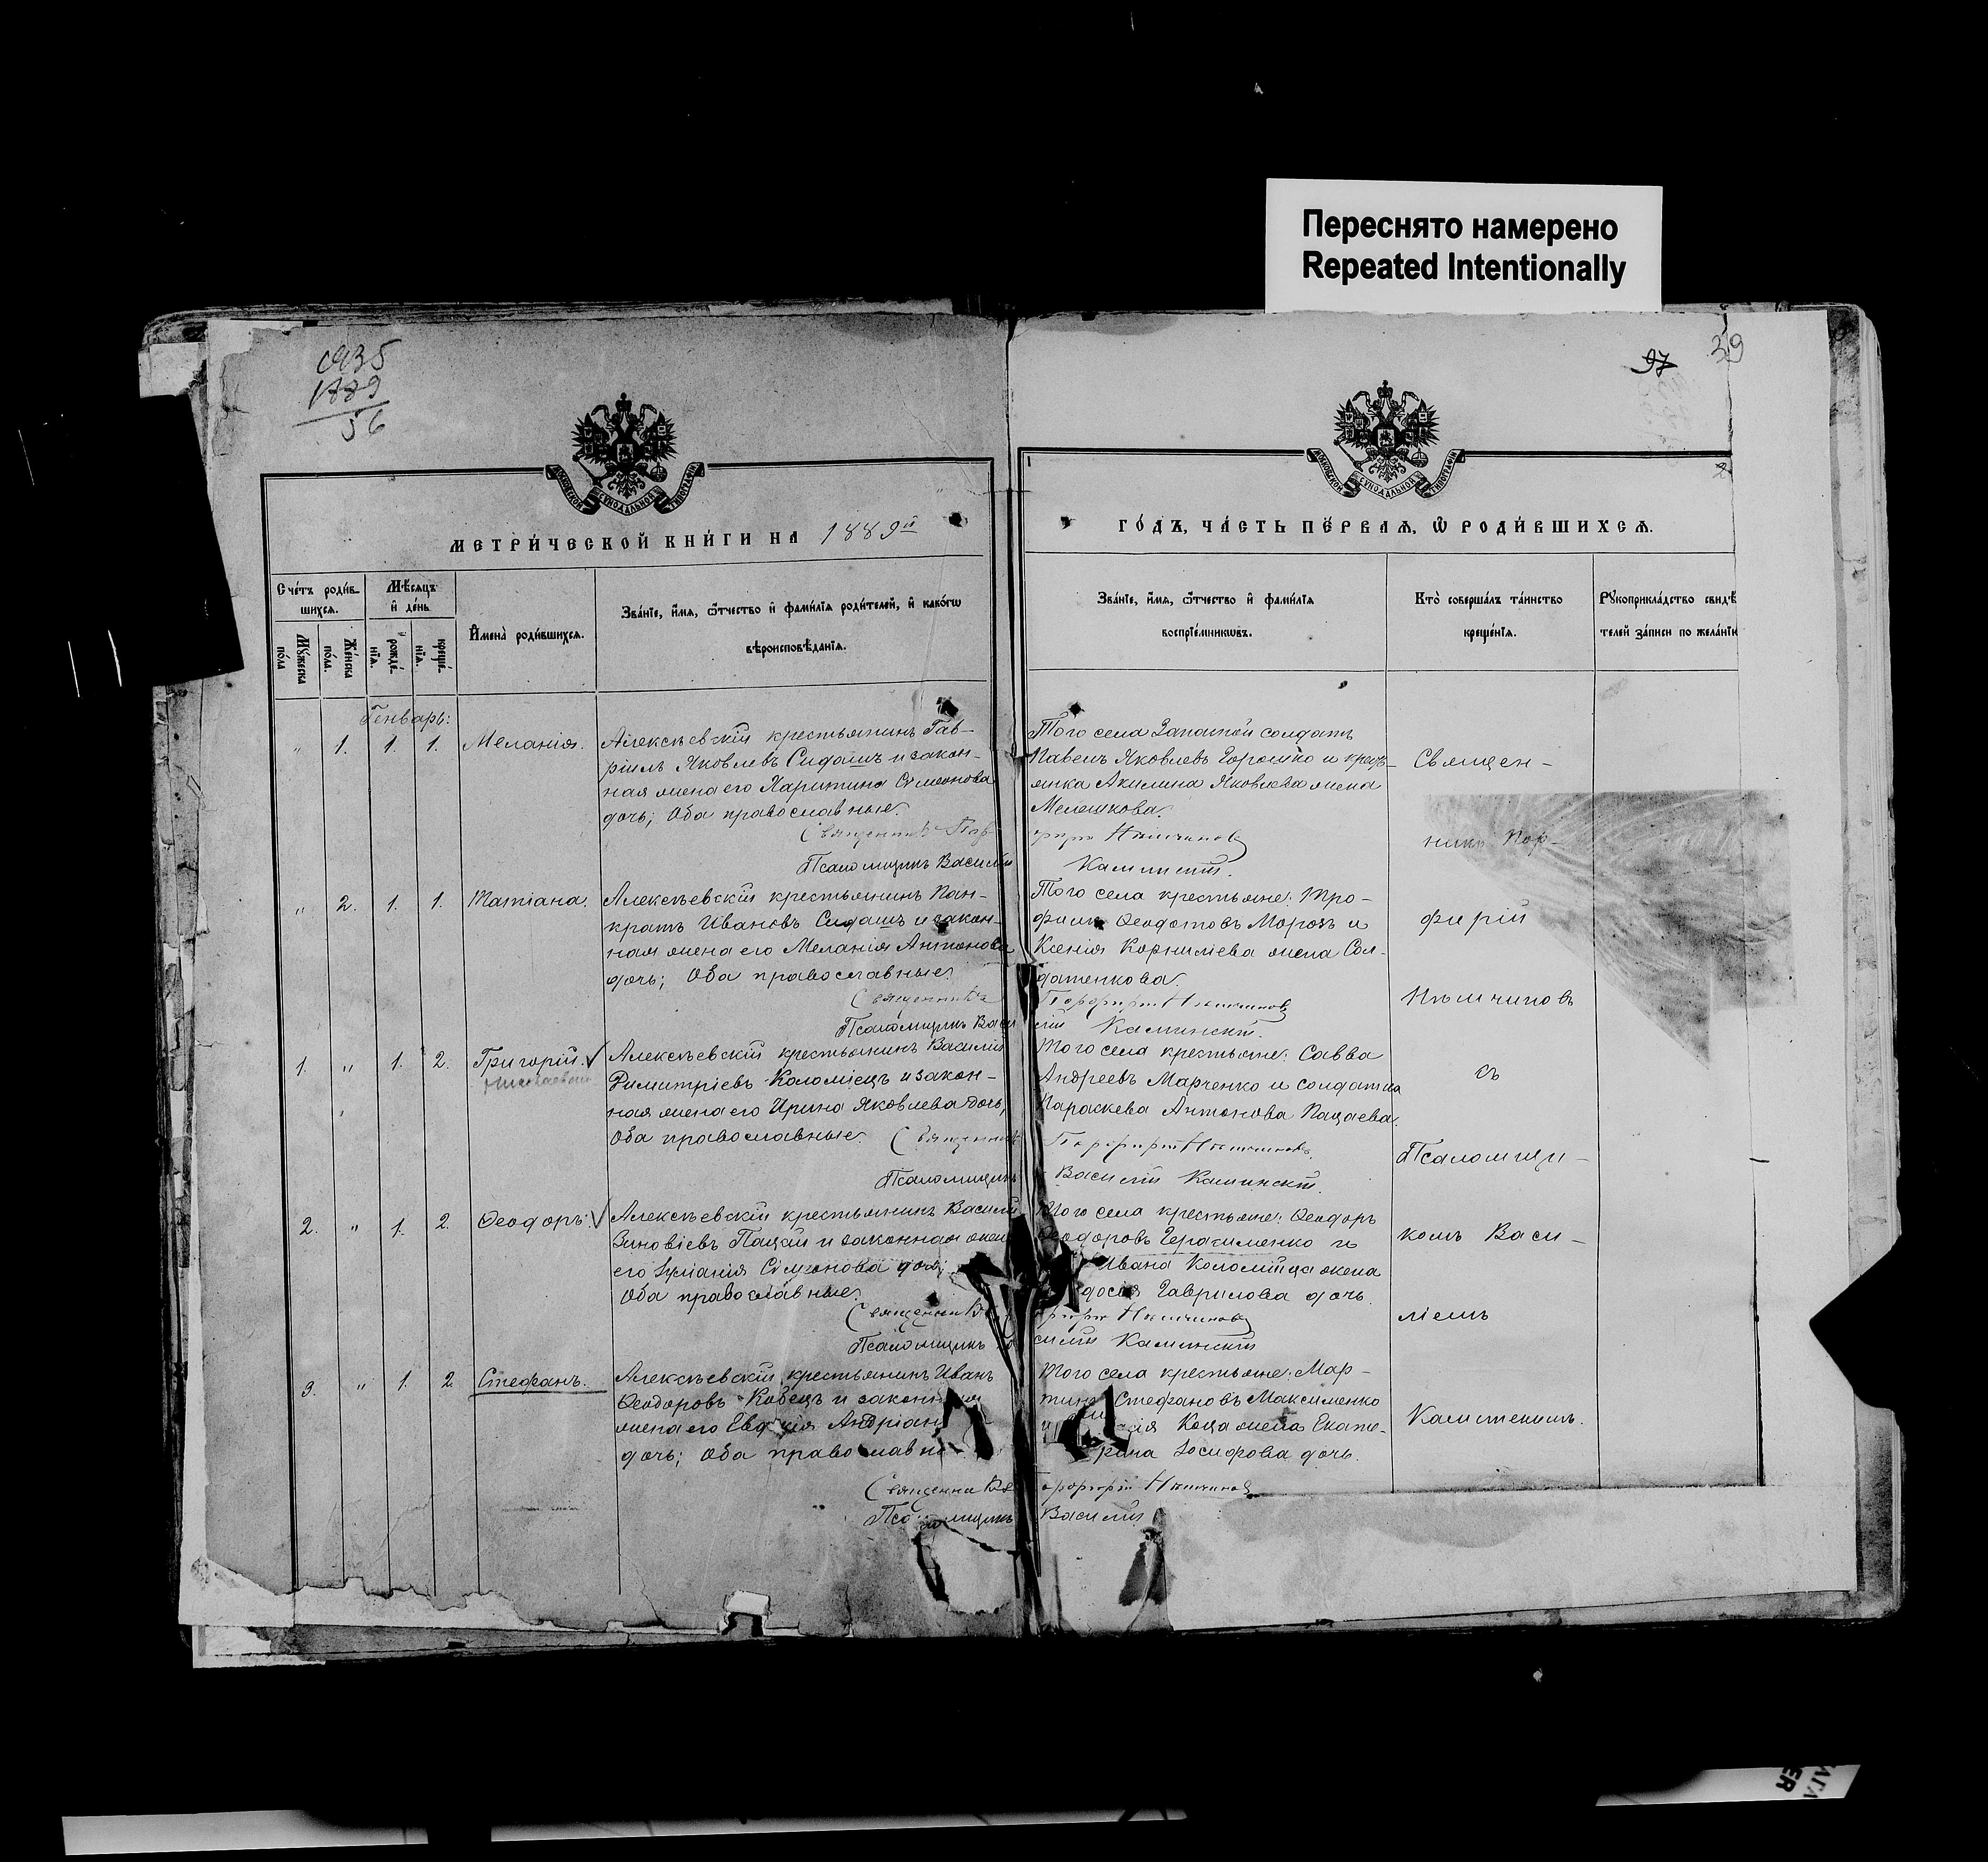 Переснято намерено
Repeated Intentionally
1935
1889
56
97
39
МОСКОВСКОЙ СУНОДАЛЬНОЙ ТИПОГРАФІИ
МОСКОВСКОЙ СУНОДАЛЬНОЙ ТИПОГРАФІИ
МЕТРИ́ЧЕСКОЙ КНИ́ГИ НА 1889й
ГО́ДЪ, ЧА́СТЬ ПЕ́РВАѦ, Ѡ РОДИ́ВШИХСѦ.
Сче́тъ роди́в-
шихсѧ.
Мѣ́сѧцъ
и҆ де́нь.
Мꙋ́жеска
по́ла
Же́нска
по́ла.
рожде́-
нїѧ.
креще́-
нїѧ.
И҆мена̀ роди́вшихсѧ.
Зва́нїе, и҆́мѧ, ѻ҆́тчество и҆ фами́лїѧ роди́телей, и҆ како́гѡ
вѣроисповѣ́данїѧ.
Зва́нїе, и҆́мѧ, ѻ҆́тчество и҆ фами́лїѧ
воспрїе́мникѡвъ.
Кто̀ соверша́лъ та́инство
креще́нїѧ.
Рꙋкоприкла́дство свидѣ́
телей за́писи по жела́нїю
Генварь:
" 1. 1. 1. Меланія.
Алексѣевскій крестьянинъ Гав-
ріилъ Яковлевъ Сидашъ и закон-
ная жена его Харитина Симеонова
дочь; Оба православные.
Священникъ Пор
Псаломщикъ Василій
Того села Запасной солдатъ
Павелъ Яковлевъ Горошко и кресть-
янка Акилина Яковлева жена
Мелешкова.
фирій Нѣмчиновъ
Каминскій.
" 2. 1. 1. Татіана.
Алексѣевскій крестьянинъ Пан-
кратъ Ивановъ Сидашъ и закон-
ная жена его Меланія Антонова
дочь; Оба православные.
Священникъ
Псаломщикъ Васи
Того села крестьяне: Тро-
фимъ Ѳеодотовъ Морозъ и
Ксенія Корниліева жена Сол-
датенкова.
Порфирій Нѣмчиновъ
лій Каминскій.
1. " 1. 2. Григорій.
Алексѣевскій крестьянинъ Василій
Димитріевъ Коломіецъ и закон-
ная жена его Ирина Яковлева дочь,
Оба православные. Священникъ
Псаломщикъ
Того села крестьяне: Савва
Андреевъ Марченко и солдатка
Параскева Антонова Пацаева.
Порфирій Нѣмчиновъ
Василій Каминскій.
2. " 1. 2. Ѳеодоръ.
Алексѣевскій крестьянинъ Василій
Зиновіевъ Пацай и законная жена
его Іуліанія Симеонова дочь;
Оба православные.
Священникъ Пор
Псаломщикъ Ва
Того села крестьяне: Ѳеодоръ
Ѳеодоровъ Герасименко и
Ивана Коломійца жена
досія Гаврилова дочь.
фирій Нѣмчиновъ
силій Каминскій
3. " 1. 2. Стефанъ.
Алексѣевскій крестьянинъ Иванъ
Ѳеодоровъ Кобецъ и законная
жена его Евдокія Андріан
дочь; Оба православн
Священникъ
Псаломщикъ
Того села крестьяне: Мар-
тинъ Стефановъ Максименко
и сія Коца жена Екате-
рина Іосифова дочь.
Порфирій Нѣмчиновъ
Василій
Священ-
никъ Пор-
фирій
Нѣмчиновъ
съ
Псаломщи-
комъ Васи-
ліемъ
Каминскимъ.